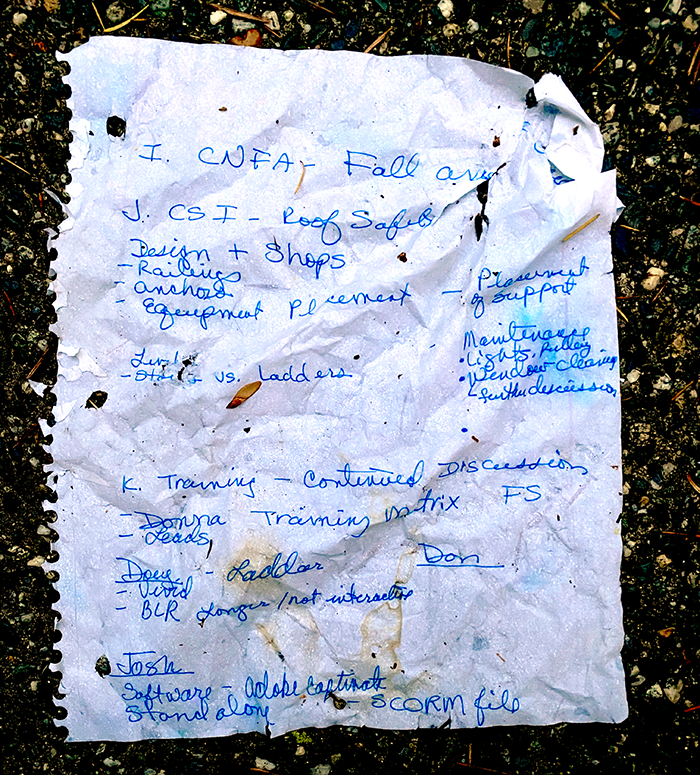 I. CNFA - Fall
J. CSI - Roof Safety
Design + Shops
- Railings
- anchors
- Equipment Placement - Placement of support
Maintenance
• Lights,
• Window Cleaning
- further discussion
- Stairs vs. Ladders
K. Training - Continued Discussion
- Donna Training matrix FS
- Leads
Doug - Ladder Don
- Vivid
- BLR longer / not interactive
Josh
Software - Adobe Captivate
Stand alone - SCORM file